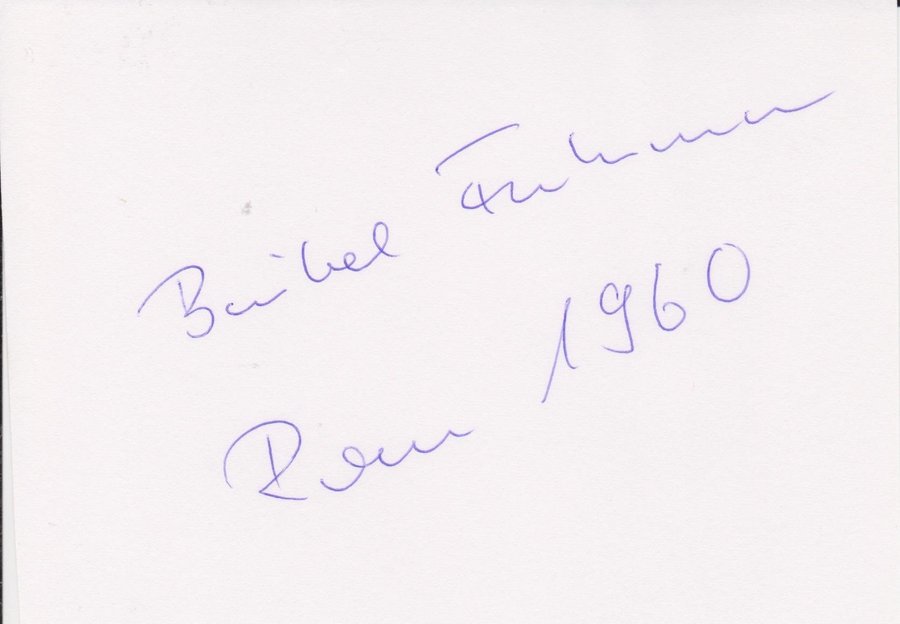 Bärbel Fuhrmann
Rom 1960